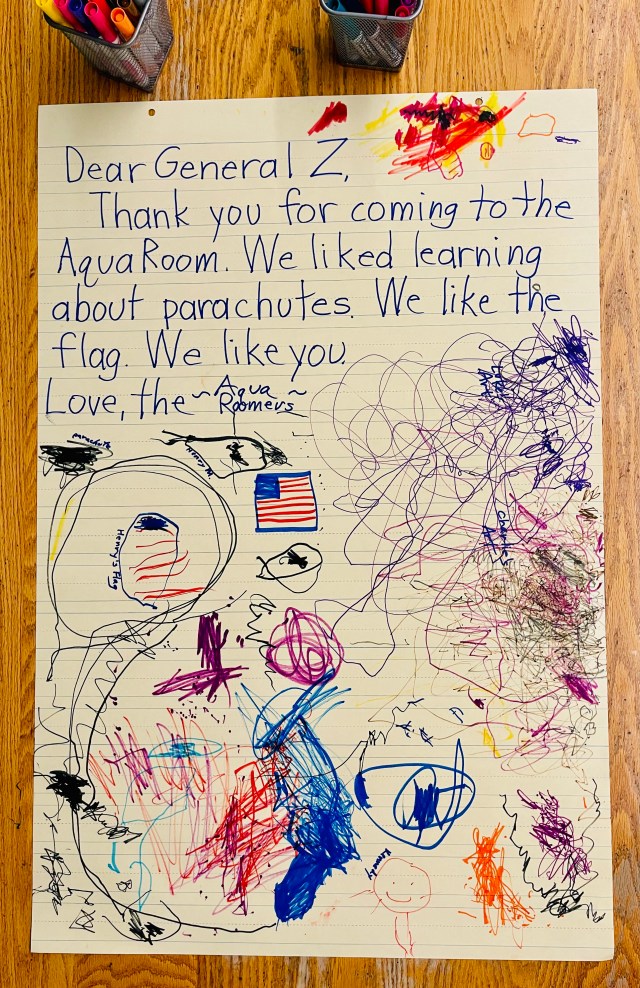 Dear General Z,
Thank you for coming to the
AquaRoom. We liked learning
about parachutes. We like the
flag. We like you.
Love, the ~Aqua
Roomers~
parachute
Henry's Flag